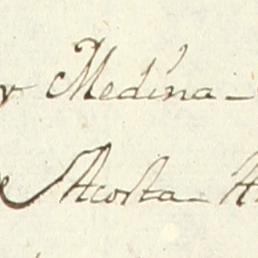 Medina -
Acosta -